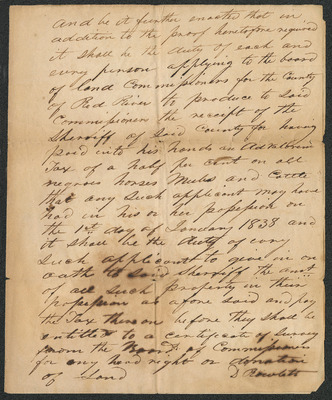 And be it further enacted that in
addition to the proof heretofore required
it shall be the duty of each and
every person applying to the board
of land Commissioners for the County
of Red River to produce to said
Commissioners the receipt of the
Sherriff of said County for having
paid into his hands an Advalorem
Tax of a half per cent on all
negroes horses Mules and Cattle
that any Such applicant may have
had in his or her possession on
the 1st day of January 1838 and
it shall be the duty of every
Such applicant to give in on
oath to said Sherriff the amt
of all such property in their
possession as afore said and pay
the Tax thereon before they shall be
entitled to a certificate of Survey
from the Board of Commissioners
for any head right or donation
of Land D Rowlett